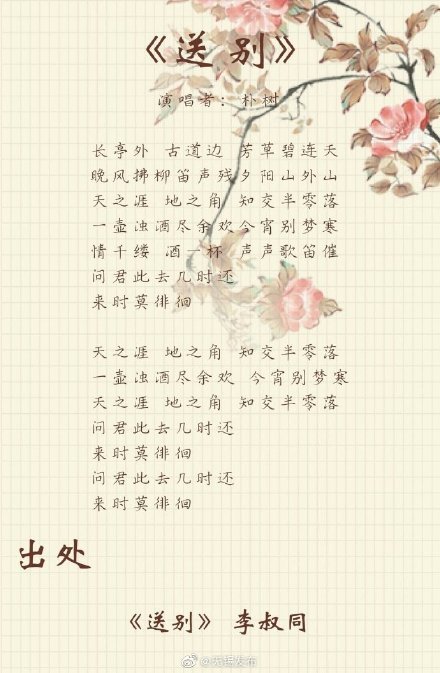 《送别》
演唱者：朴树
长亭外 古道边 芳草碧连天
晚风拂柳笛声残夕阳山外山
天之涯 地之角 知交半零落
一壶浊酒尽余欢今宵别梦寒
情千缕 酒一杯 声声歌笛催
问君此去几时还
来时莫徘徊
天之涯 地之角 知交半零落
一壶浊酒尽余欢 今宵别梦寒
天之涯 地之角 知交半零落
问君此去几时还
来时莫徘徊
问君此去几时还
来时莫徘徊
出处
《送别》 李叔同
@无锡发布